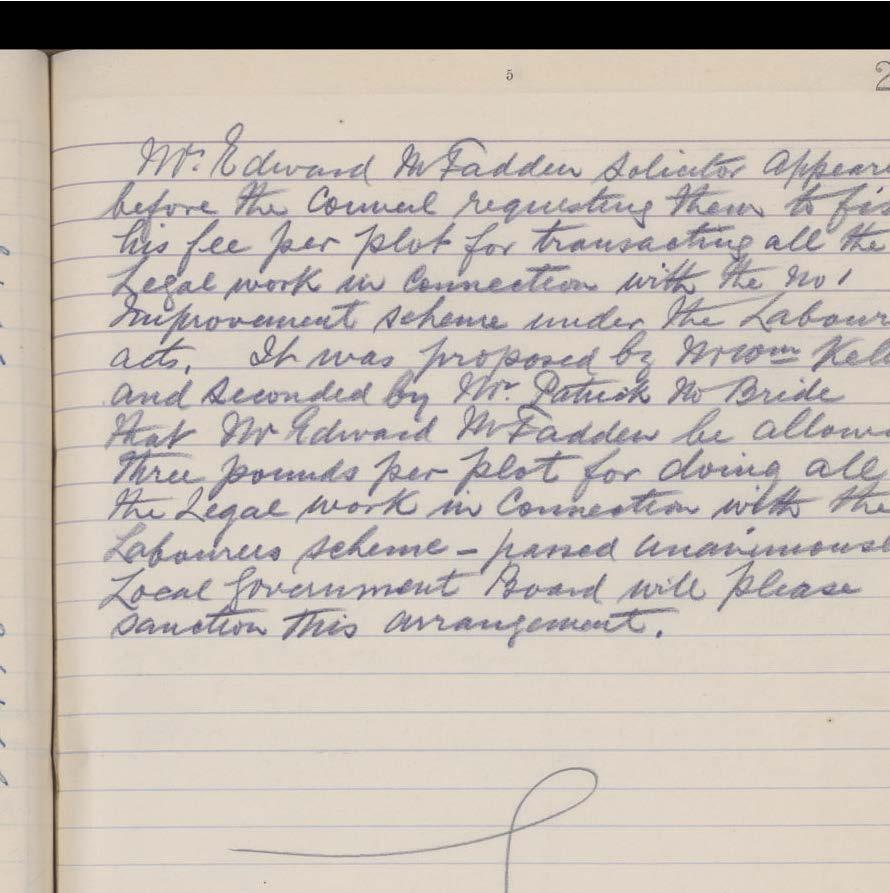 5
2
Mr. Edward McFadden Solicitor appeare
before the Council requesting them to fix
his fee per plot for transacting all the
Legal work in connection with the No 1
Improvement scheme under the Labour
acts. It was proposed by Mr Wm Kel
and seconded by Mr. Patrick McBride
that Mr Edward McFadden be allow
three pounds per plot for doing all
the Legal work in connection with the
Labourers scheme – passed unanimousl
Local Government Board will please
sanction this arrangement.